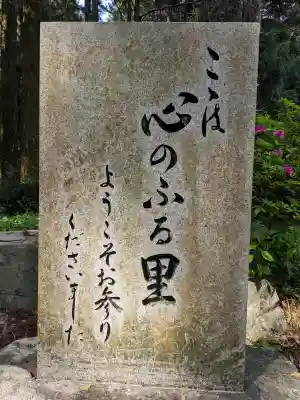 ここは
心のふる里
ようこそお参り
くださいました